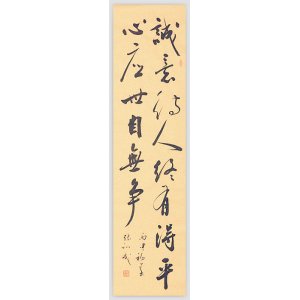 誠意待人終有得平
心應世自無爭
丙申初夏